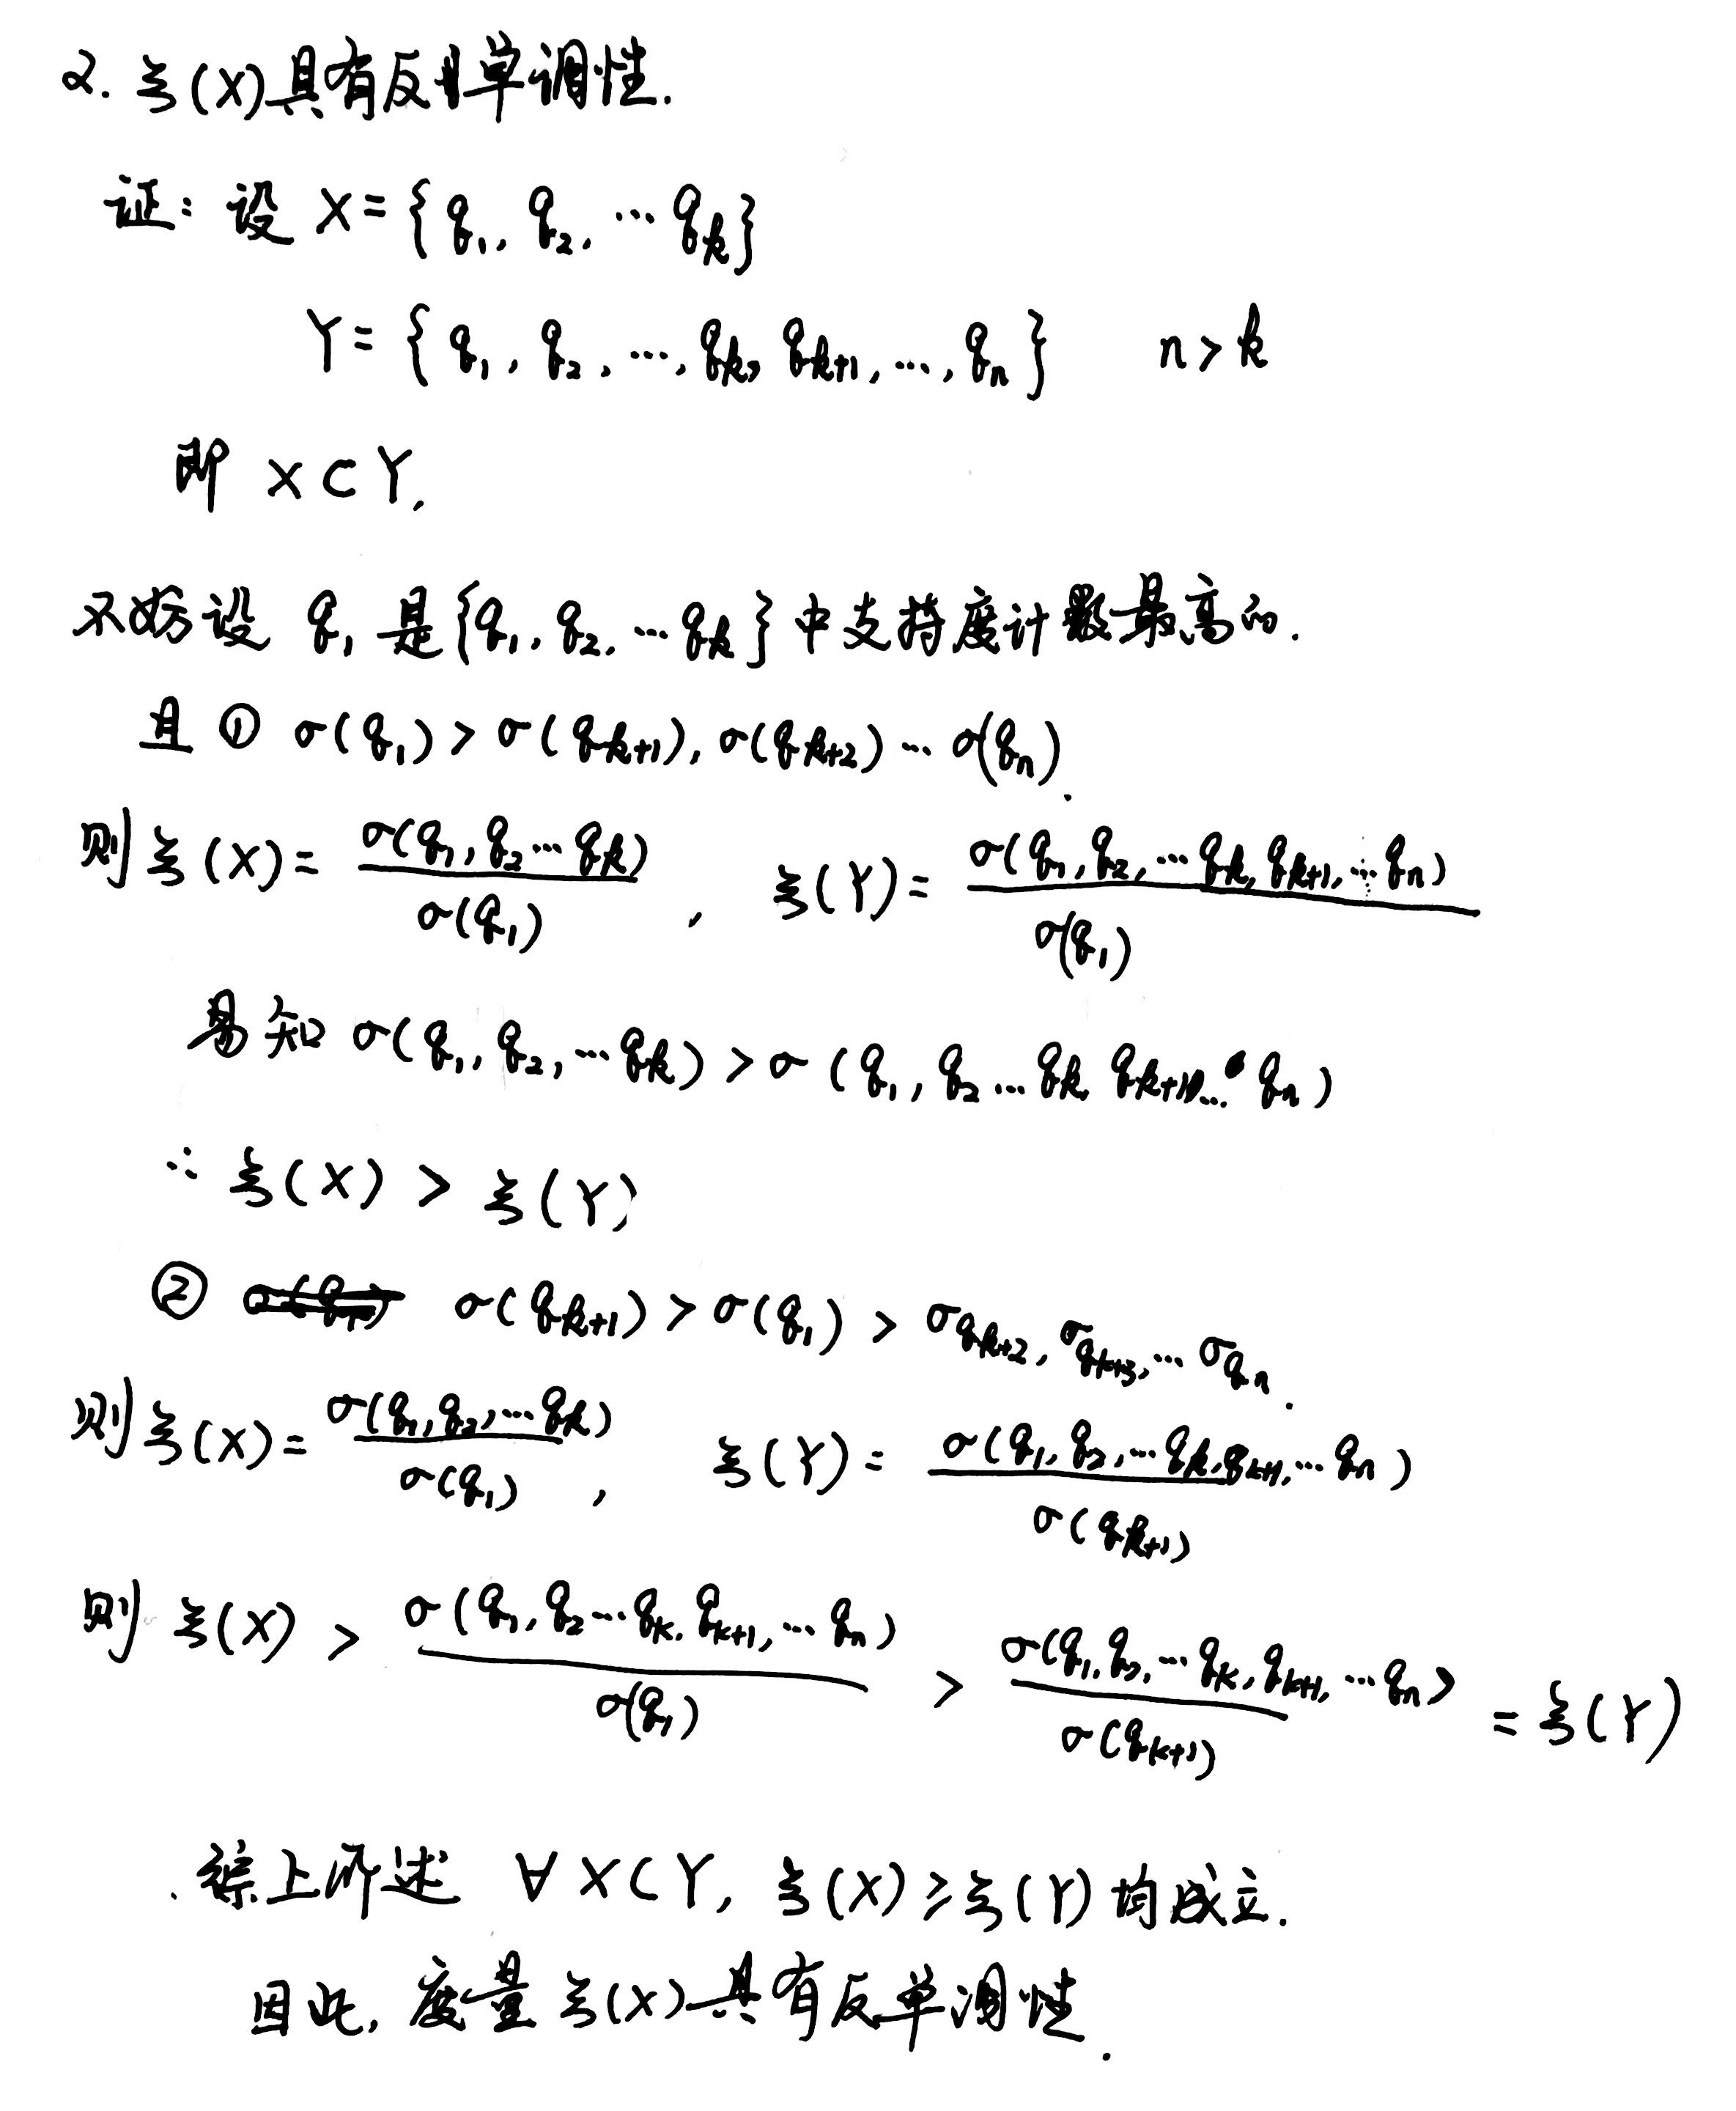 2. ξ(X)具有反单调性.
证: 设 X={q₁, q₂, … qₖ}
Y={q₁, q₂, …, qₖ, qₖ₊₁, …, qₙ} n>k
即 X⊂Y.
不妨设 q₁ 是{q₁, q₂, … qₖ}中支持度计数最高的.
且 ① σ(q₁)>σ(qₖ₊₁), σ(qₖ₊₂) … σ(qₙ).
则 ξ(X)= σ(q₁, q₂ … qₖ) / σ(q₁) , ξ(Y)= σ(q₁, q₂, … qₖ, qₖ₊₁, … qₙ) / σ(q₁)
易知 σ(q₁, q₂, … qₖ) > σ(q₁, q₂ … qₖ, qₖ₊₁, … qₙ)
∴ ξ(X) > ξ(Y)
② σ(qₖ₊₁) > σ(q₁) > σqₖ₊₂, σqₖ₊₃, … σqₙ.
则 ξ(X)= σ(q₁, q₂, … qₖ) / σ(q₁) , ξ(Y)= σ(q₁, q₂, … qₖ, qₖ₊₁, … qₙ) / σ(qₖ₊₁)
则 ξ(X) > σ(q₁, q₂ … qₖ, qₖ₊₁, … qₙ) / σ(q₁) > σ(q₁, q₂, … qₖ, qₖ₊₁, … qₙ) / σ(qₖ₊₁) = ξ(Y)
综上所述 ∀ X⊂Y, ξ(X)≥ξ(Y)均成立.
因此, 度量ξ(X)具有反单调性.